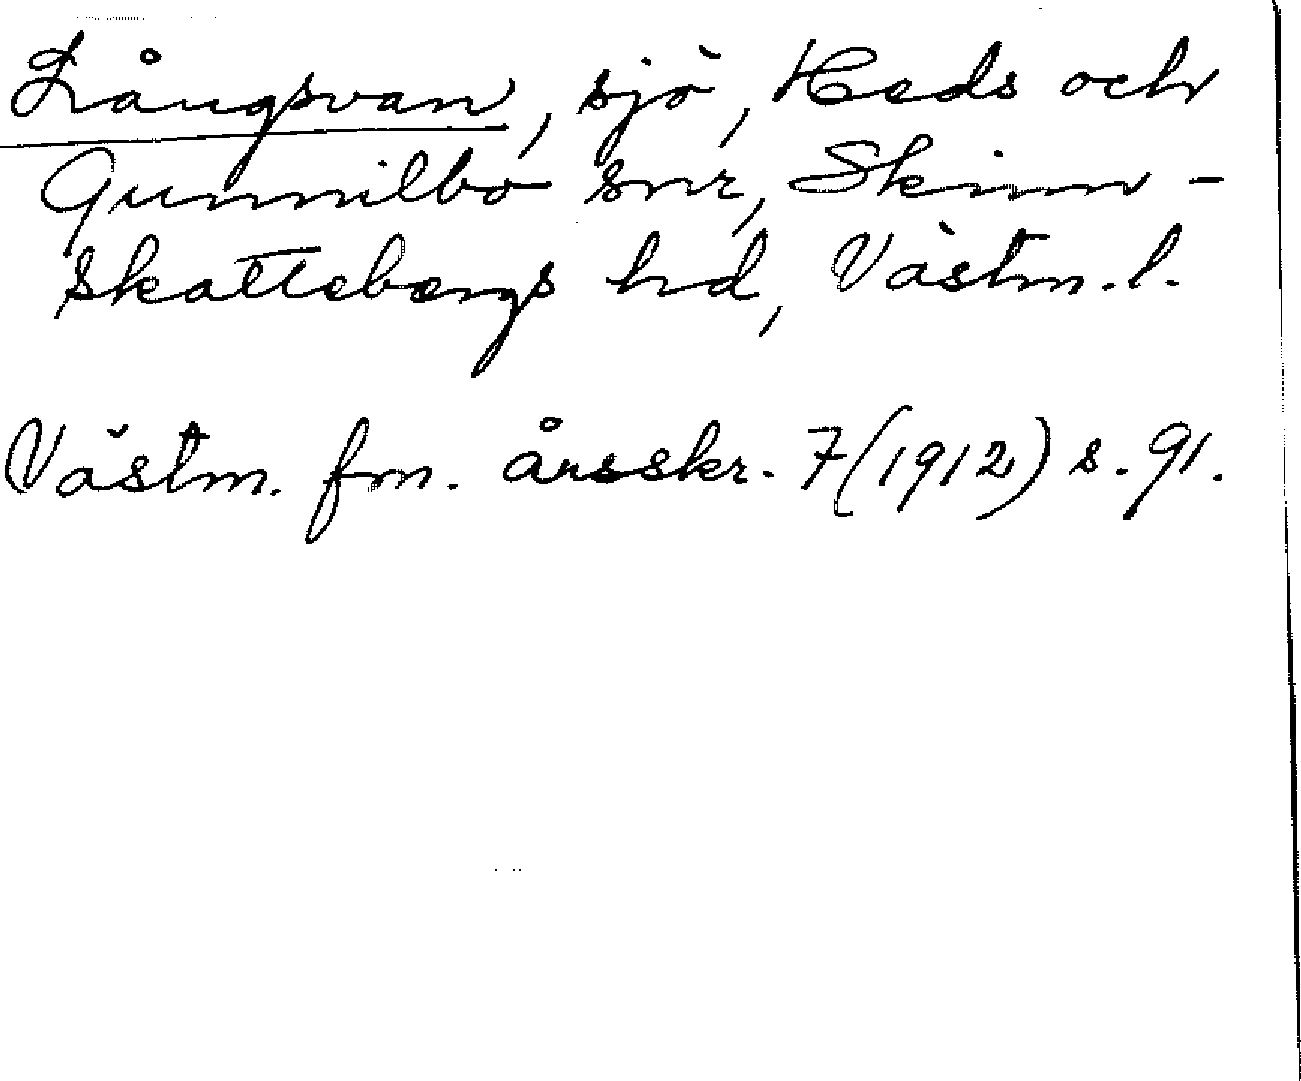 Långsvan, sjö, Heds och
Gunnilbo snr, Skinn-
skattebergs hd, Västm. l.
Västm. fm. årsskr. 7(1912) s. 91.